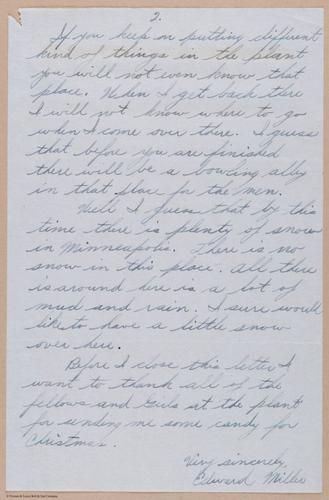 2.
If you keep on putting different
kind of things in the plant
you will not even know that
place. When I get back there
I will not know where to go
when I come over there. I guess
that before you are finished
there will be a bowling ally
in that place for the men.
Well I guess that by this
time there is plenty of snow
in Minneapolis. There is no
snow in this place. All there
is around here is a lot of
mud and rain. I sure would
like to have a little snow
over here.
Before I close this letter I
want to thank all of the
fellows and Girls at the plant
for sending me some candy for
Christmas.
Very sincerely,
Edward Miller